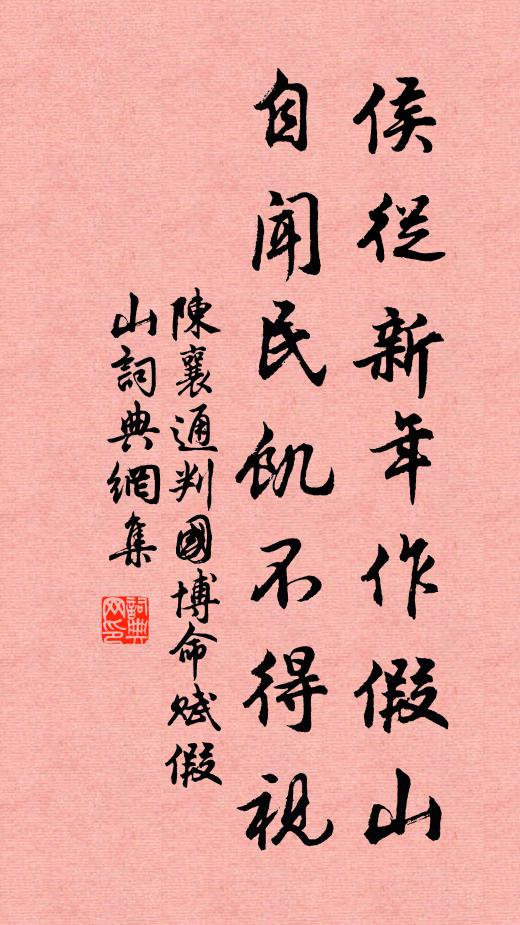 侯從新年作假山
自聞民飢不得視
陳襄通判國博命賦假
山詞典網集
詞典
网印